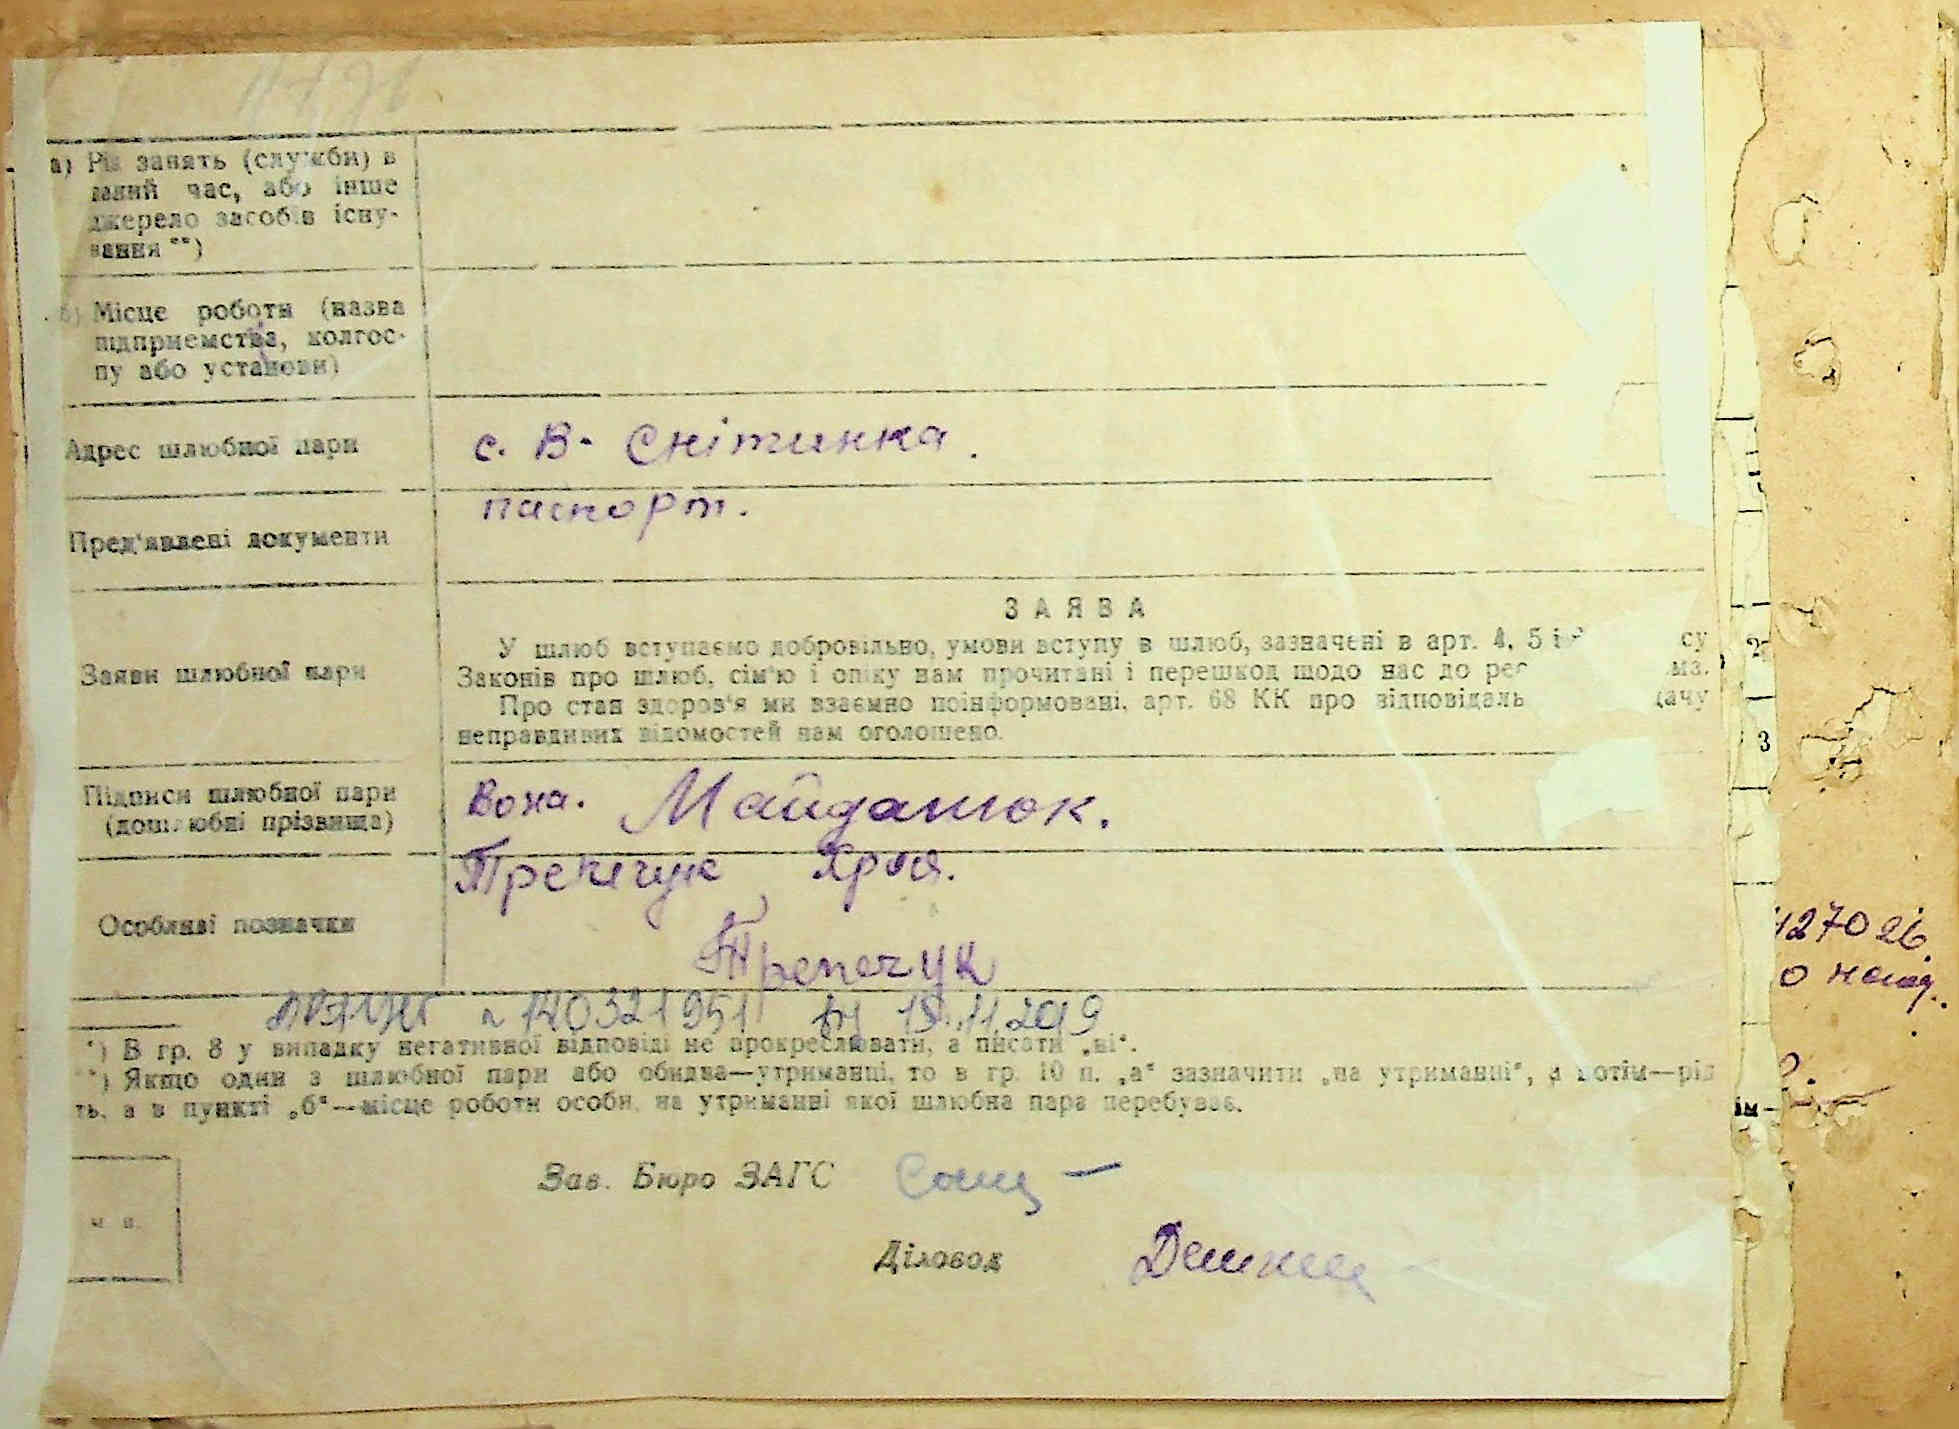 а) Рід занять (служби) в
даний час, або інше
джерело засобів існу-
вання **)
б) Місце роботи (назва
підприємства, колгос-
пу або установи)
Адрес шлюбної пари
с. В- Снітинка.
Пред'явлені документи
паспорт.
ЗАЯВА
Заяви шлюбної пари
У шлюб вступаємо добровільно, умови вступу в шлюб, зазначені в арт. 4, 5 і су
Законів про шлюб, сім'ю і опіку нам прочитані і перешкод щодо нас до рес ма.
Про стан здоров'я ми взаємно поінформовані, арт. 68 КК про відповідаль дачу
неправдивих відомостей нам оголошено.
Підписи шлюбної пари
(дошлюбні прізвища)
Вона. Майданюк.
Особливі позначки
Трепечук
Трепечук
140321951 від 11.2019
*) В гр. 8 у випадку негативної відповіді не прокреслювати, а писати „ні".
*) Якщо один з шлюбної пари або обидва—утриманці, то в гр. 10 п. „а" зазначити „на утриманні", а потім—рід
ть, а в пункті „б"—місце роботи особи, на утриманні якої шлюбна пара перебуває.
Зав. Бюро ЗАГС
м. п.
Діловод
2
3
ім—